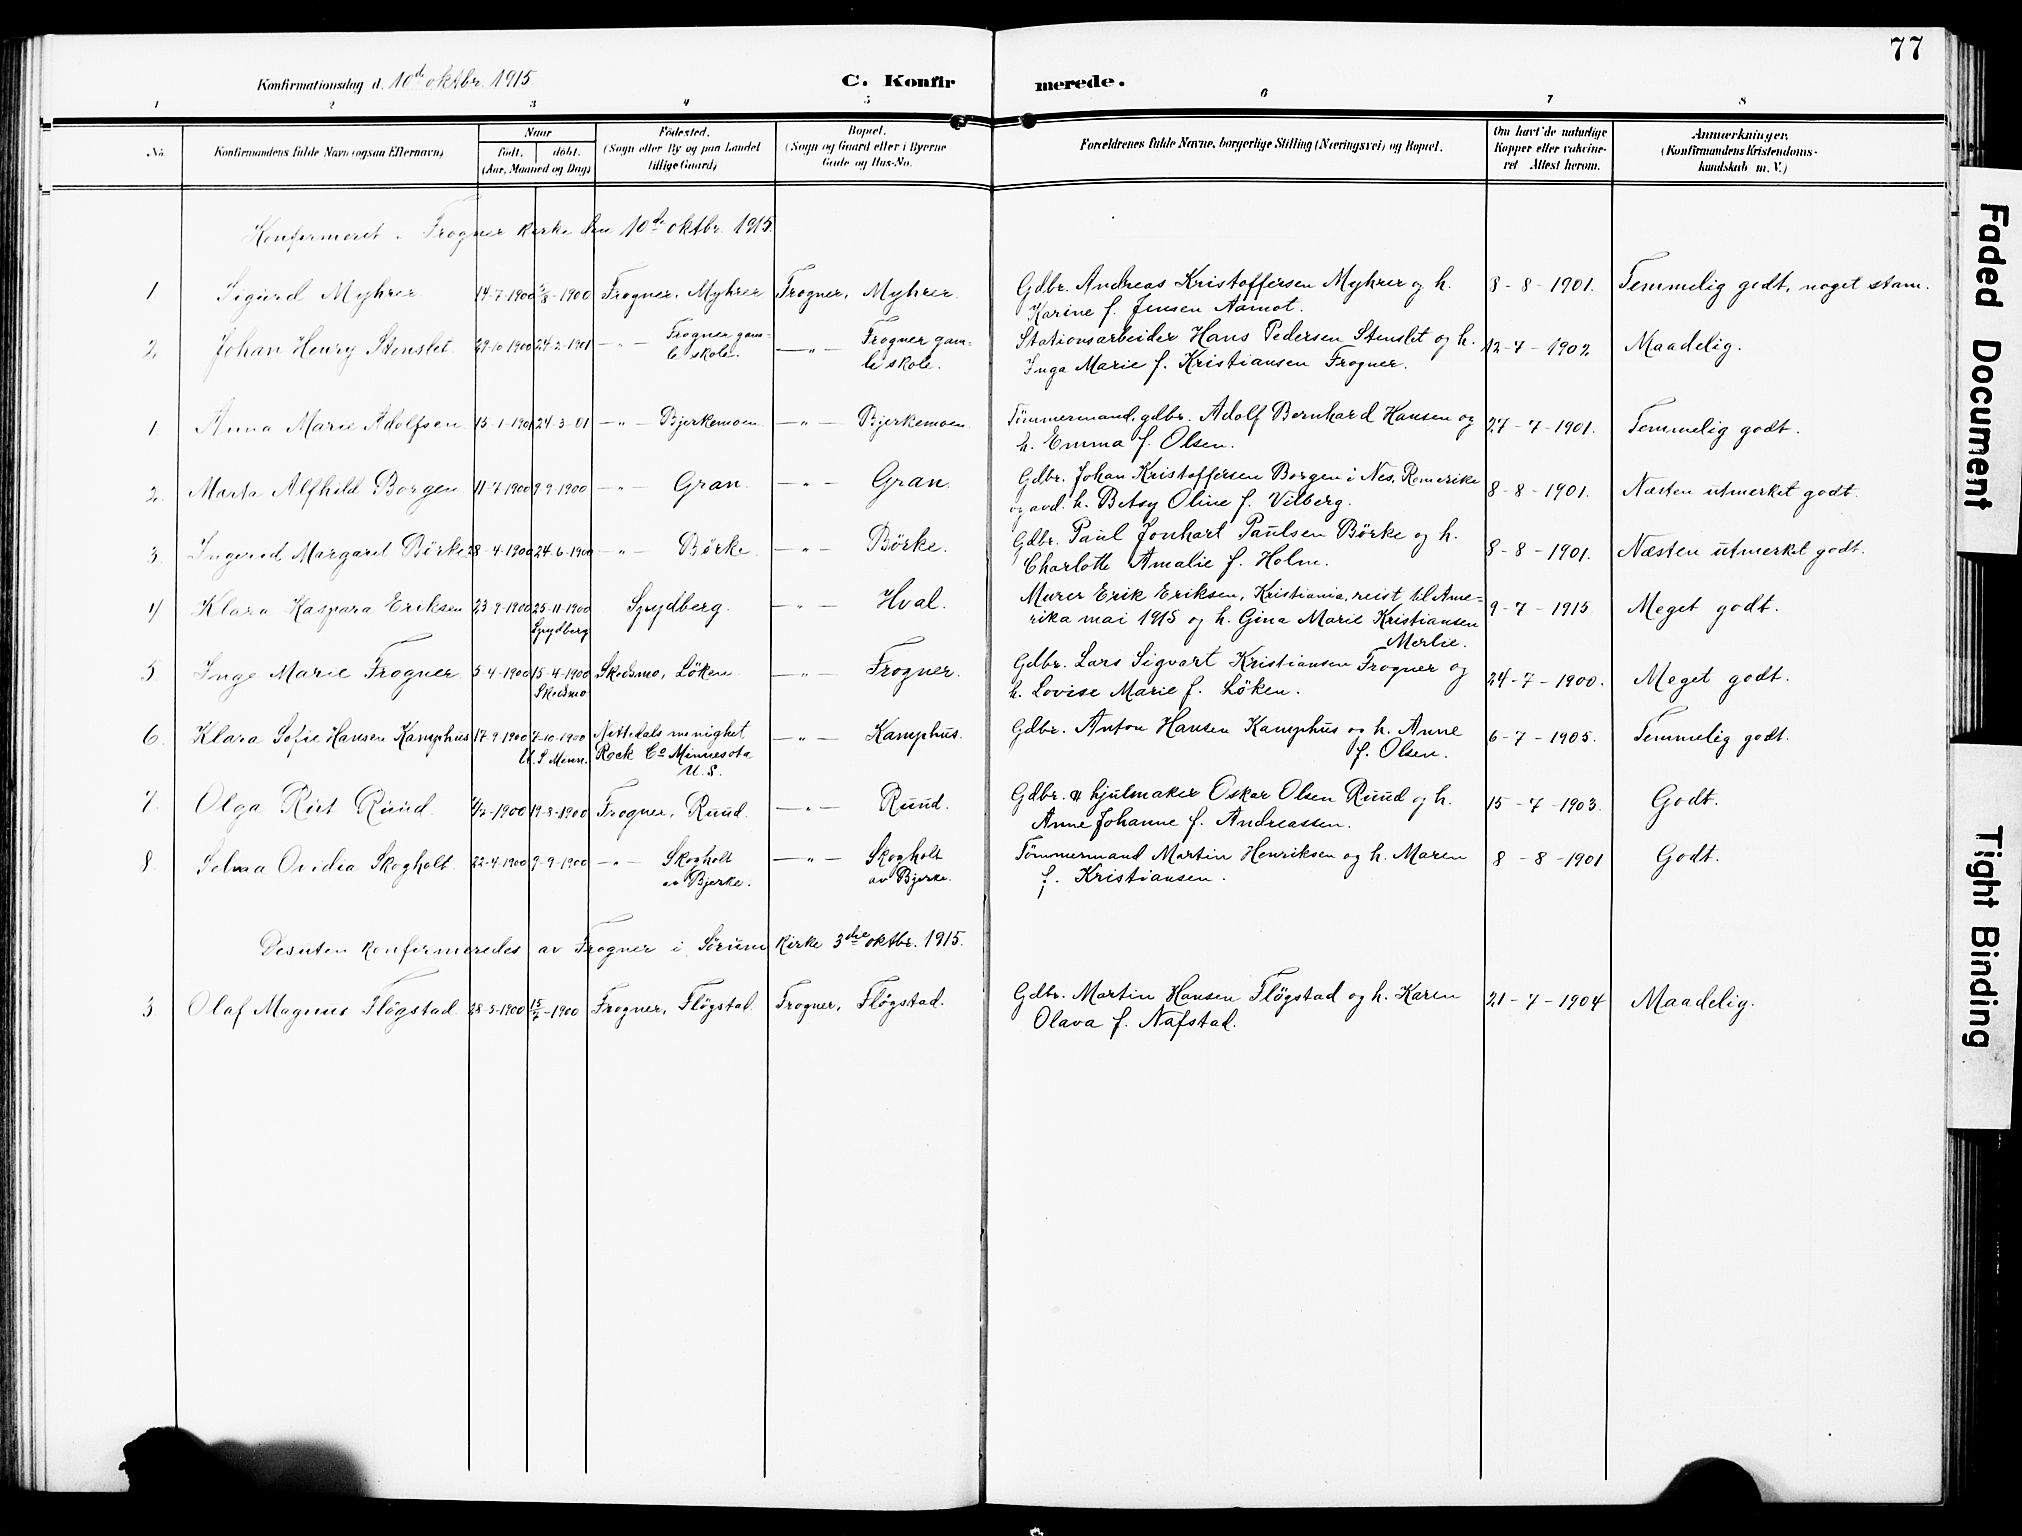 77
Konfirmationsdag d. 10de oktbr. 1915. C. Konfirmerede.
1 2 3 4 5 6 7 8
No. Konfirmandens fulde Navn (ogsaa Efternavn) Naar født. døbt. (Aar, Maaned og Dag) Fødested. (Sogn eller By og paa Landet tillige Gaard) Bopæl. (Sogn og Gaard eller i Byerne Gade og Hus-No. Forældrenes fulde Navne, borgerlige Stilling (Næringsvei) og Bopæl. Om havt de naturlige Kopper eller vakcineret Attest herom. Anmærkninger. (Konfirmandens Kristendomskundskab m. V.)
Konfirmeret i Frogner kirke den 10de oktbr. 1915.
1 Sigurd Myhrer 14-7-1900 -1900 Frogner, Myhrer Frogner, Myhrer. Gdbr. Andreas Kristoffersen Myhrer og h. 8-8-1901. Temmelig godt, noget stam.
Karine f. Jensen Aamot.
2. Johan Henry Stenslet 29-10-1900 24-2-1901 —"— Frogner gam- —"— Frogner gam- Stationsarbeider Hans Pedersen Stenslet og h. 12-7-1902 Maadelig.
le skole. le skole. Inga Marie f. Kristiansen Frogner.
1 Anna Marie Adolfsen 15-1-1901 24-3-01 —"— Bjerkemoen —"— Bjerkemoen Tømmermand, gdbr. Adolf Bernhard Hansen og 27-7-1901. Temmelig godt.
h. Emma f. Olsen.
2. Marta Alfhild Borgen 11-7-1900 9-9-1900 —"— Gran. —"— Gran. Gdbr. Johan Kristoffersen Borgen i Nes, Romerike 8-8-1901. Næsten utmerket godt.
og avd. h. Betsy Oline f. Vilberg.
3. Ingerid Margaret Børke 28-4-1900 24-6-1900 —"— Børke. —"— Børke. Gdbr. Paul Jonhart Paulsen Børke og h. 8-8-1901. Næsten utmerket godt.
Charlotte Amalie f. Holm.
4 Klara Kaspara Eriksen 23-9-1900 25-11-1900 Spydberg. —"— Hval. Murer Erik Eriksen, Kristiania, reist til Ame- 9-7-1915 Meget godt.
Spydberg rika mai 1915 og h. Gina Marie Kristiansen
Merlie.
5 Inga Marie Frogner 5-4-1900 15-4-1900 Skedsmo, Løken —"— Frogner. Gdbr. Lars Sigvart Kristiansen Frogner og 24-7-1900. Meget godt.
Skedsmo h. Lovise Marie f. Løken.
6. Klara Sofie Hansen Kamphus 17-9-1900 7-10-1900 Nittedals menighet —"— Kamphus. Gdbr. Anton Hansen Kamphus og h. Anne 6-7-1905. Temmelig godt.
U.S. Menn. Rock Co Minnesota f. Olsen.
U.S.
7. Olga Rut Ruud -1900 19-8-1900 Frogner, Ruud. —"— Ruud. Gdbr. & hjulmaker Oskar Olsen Ruud og h. 15-7-1903. Godt.
Anne Johanne f. Andreassen.
8. Selma Ovidia Skogholt 22-4-1900 9-9-1900 —"— Skogholt —"— Skogholt Tømmermand Martin Henriksen og h. Maren 8-8-1901 Godt.
av Bjerke. av Bjerke. f. Kristiansen.
Desuten konfirmeredes av Frogner i Sørum kirke 3die oktbr. 1915.
3. Olaf Magnus Fløgstad 28-5-1900 15/7-1900 Frogner, Fløgstad Frogner, Fløgstad. Gdbr. Martin Hansen Fløgstad og h. Karen 21-7-1904 Maadelig.
Olava f. Nafstad.
Faded Document
Tight Binding